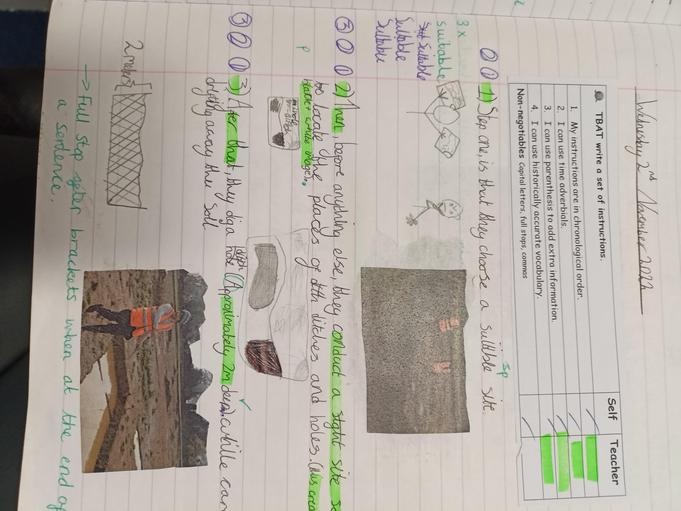 Wednesday 2nd November 2022
TBAT write a set of instructions.
Self
Teacher
1. My instructions are in chronological order.
2. I can use time adverbials.
3. I can use parenthesis to add extra information.
4. I can use historically accurate vocabulary.
Non-negotiables Capital letters, full stops, commas
1) Step one, is that they choose a suitible site.
sp
3x
suitable
Suitable
Suitable
2) Then, before anything else, they conduct a sight site
to locate the places of dith ditches and holes. (this
P
3) After that, they dig a hole (Approximately 2m deep) whille
away the soil
2 meters
→ Full stop after brackets when at the end of
a sentence.